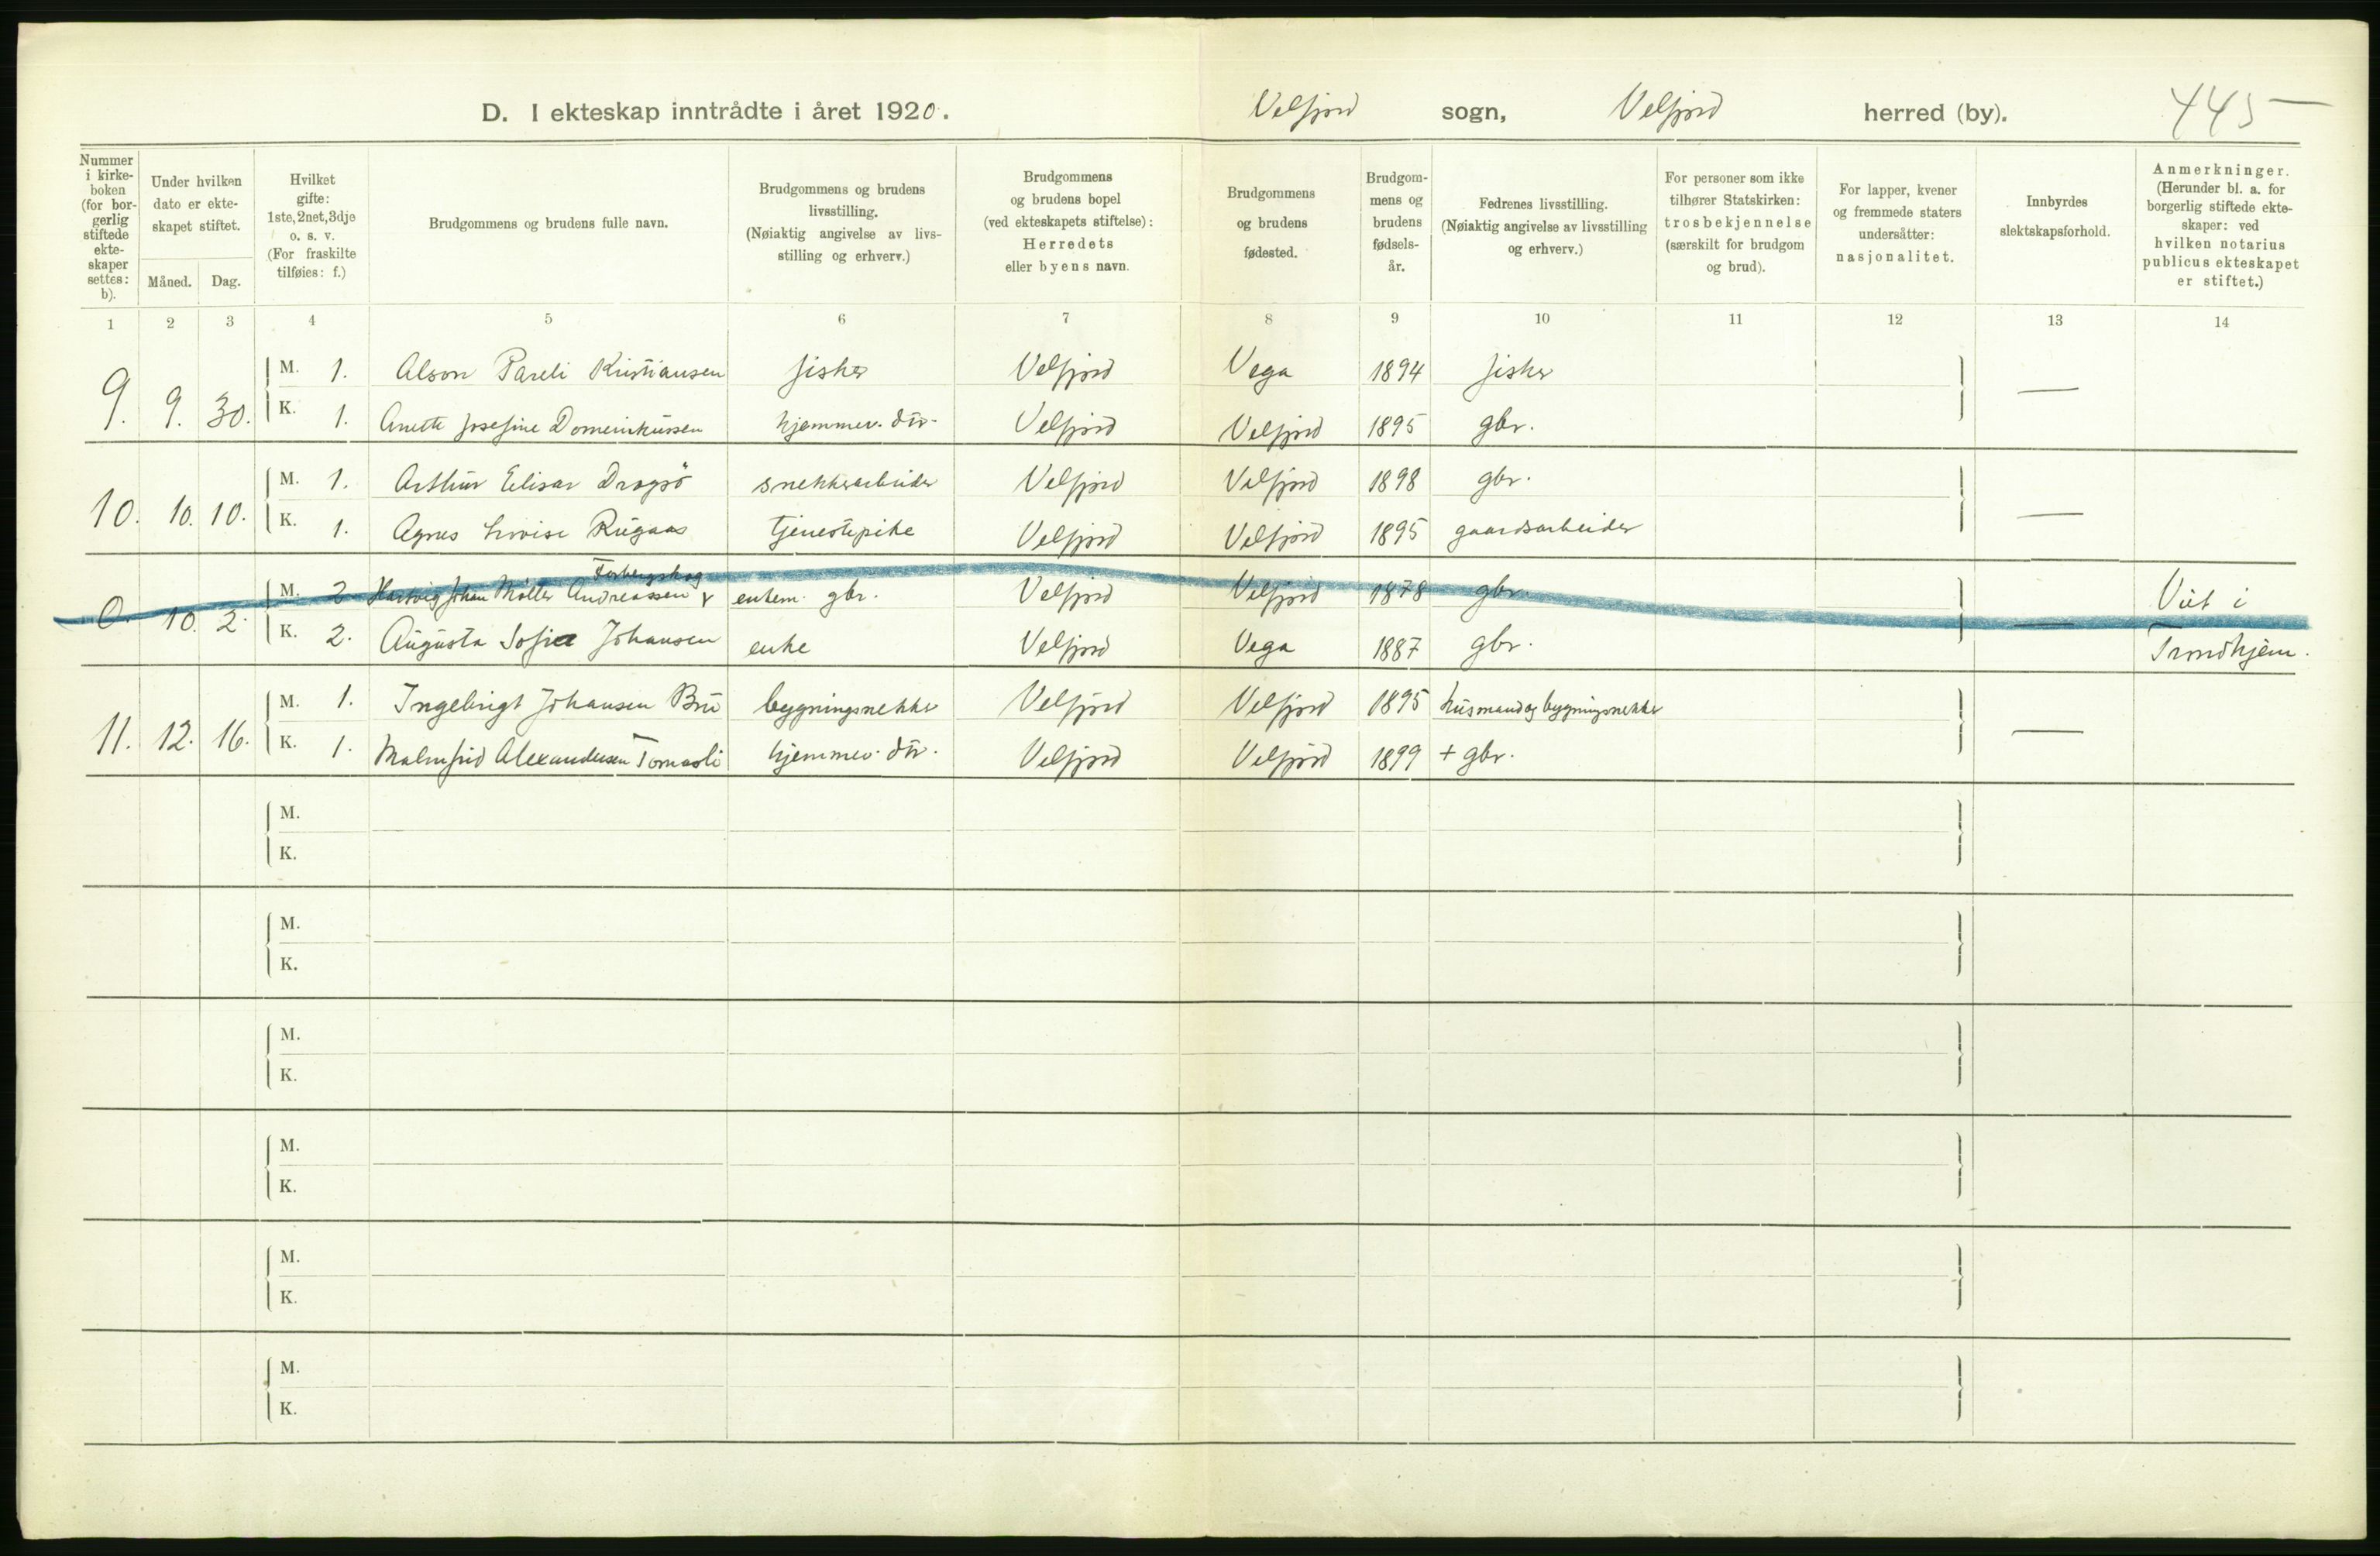 D. I ekteskap inntrådte i året 1920. Velfjord sogn, Velfjord herred (by). 445
Nummer i kirkeboken (for borgerlig stiftede ekteskaper settes: b).
Under hvilken dato er ekteskapet stiftet.
Måned. Dag.
Hvilket gifte: 1ste, 2net, 3dje o. s. v. (For fraskilte tilføies: f.)
Brudgommens og brudens fulle navn.
Brudgommens og brudens livsstilling. (Nøiaktig angivelse av livsstilling og erhverv.)
Brudgommens og brudens bopel (ved ekteskapets stiftelse): Herredets eller byens navn.
Brudgommens og brudens fødested.
Brudgommens og brudens fødselsår.
Fedrenes livsstilling. (Nøiaktig angivelse av livsstilling og erhverv.)
For personer som ikke tilhører Statskirken: trosbekjennelse (særskilt for brudgom og brud).
For lapper, kvener og fremmede staters undersåtter: nasjonalitet.
Innbyrdes slektskapsforhold.
Anmerkninger. (Herunder bl. a. for borgerlig stiftede ekteskaper: ved hvilken notarius publicus ekteskapet er stiftet.)
1 2 3 4 5 6 7 8 9 10 11 12 13 14
M. 1. Alson Pareli Kristiansen fisker Velfjord Vega 1894 fisker
9. 9. 30. K. 1. Anette Josefine Domeinkussen hjemmev. dtr. Velfjord Velfjord 1895 gbr. —
M. 1. Arthur Elisar Dragsö snekkerarbeider Velfjord Velfjord 1898 gbr.
10. 10. 10. K. 1. Agnes Lovise Rugaas tjenestepike Velfjord Velfjord 1895 gaardsarbeider —
Forbergskog
M. 2. Hartvig Johan Möller Andreassen enkem. gbr. Velfjord Velfjord 1878 gbr. Viet i
0. 10. 2. K. 2. Augusta Sofie Johansen enke Velfjord Vega 1887 gbr. — Trondhjem.
M. 1. Ingebrigt Johansen Bru bygningsnekker Velfjord Velfjord 1895 husmand og bygningsnekker
11. 12. 16. K. 1. Malmfrid Alexandersen Tomasli hjemmev. dtr. Velfjord Velfjord 1899 + gbr. —
M.
K.
M.
K.
M.
K.
M.
K.
M.
K.
M.
K.